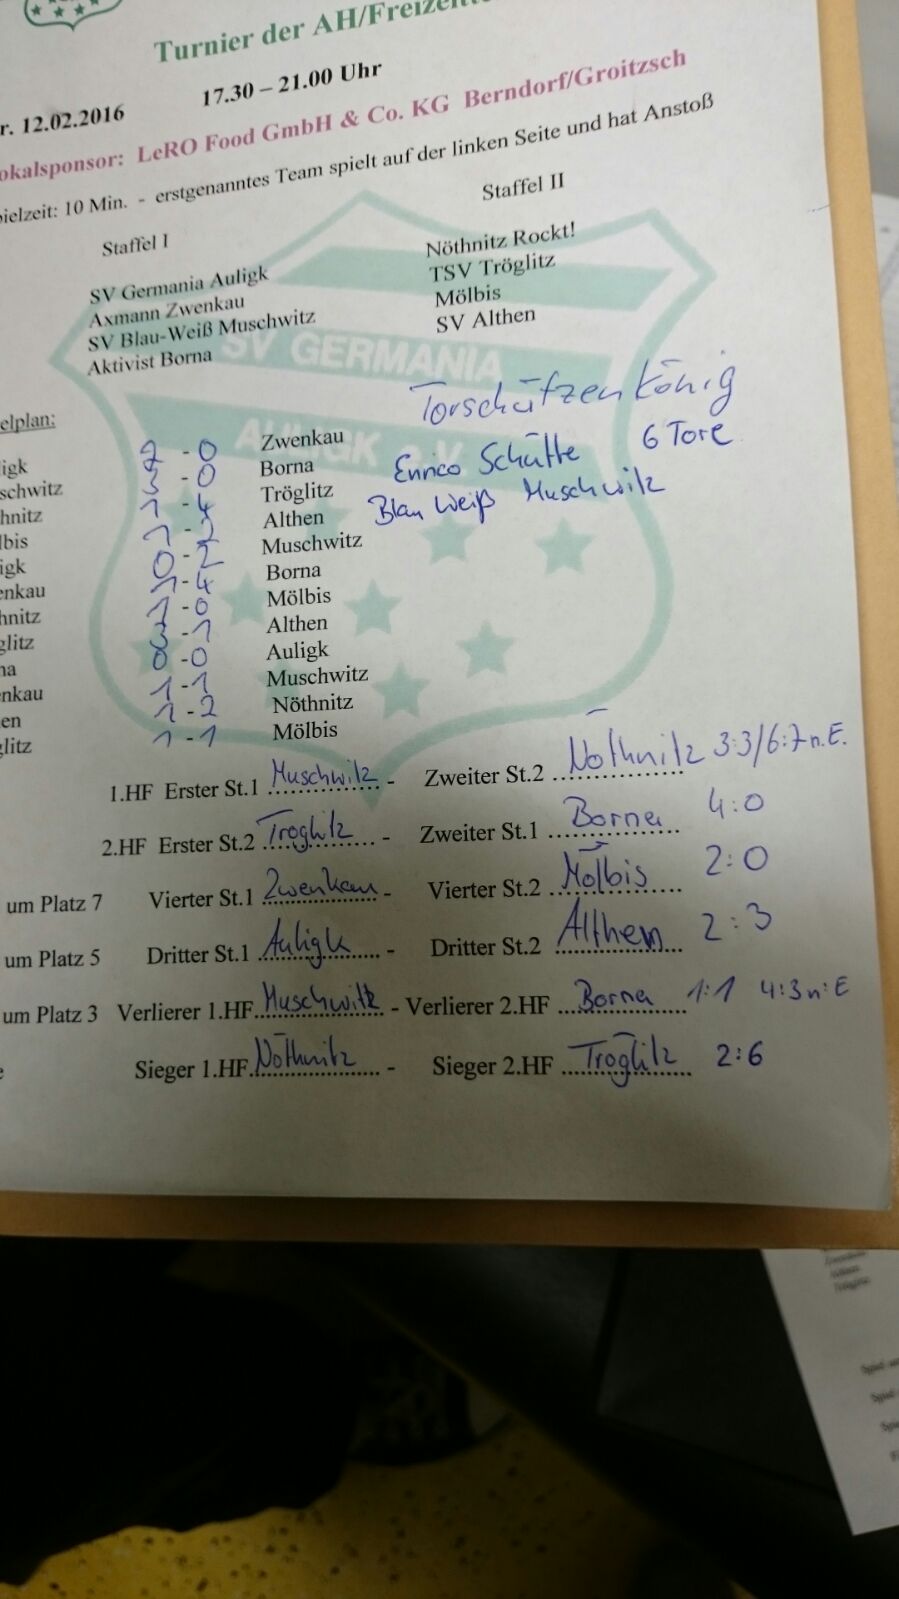 Turnier der AH/Freizeit
r. 12.02.2016 17.30 – 21.00 Uhr
okalsponsor: LeRO Food GmbH & Co. KG Berndorf/Groitzsch
ielzeit: 10 Min. - erstgenanntes Team spielt auf der linken Seite und hat Anstoß
Staffel I Staffel II
SV Germania Auligk Nöthnitz Rockt!
Axmann Zwenkau TSV Tröglitz
SV Blau-Weiß Muschwitz Mölbis
Aktivist Borna SV Althen
SV GERMANIA
AULIGK e.V.
Torschützenkönig
Enrico Schütte 6 Tore
Blau Weiß Muschwitz
elplan:
igk 2 - 0 Zwenkau
schwitz 3 - 0 Borna
hnitz 1 - 4 Tröglitz
lbis 1 - 2 Althen
igk 0 - 2 Muschwitz
enkau 1 - 4 Borna
hnitz 1 - 0 Mölbis
glitz 3 - 1 Althen
na 0 - 0 Auligk
nkau 1 - 1 Muschwitz
en 1 - 2 Nöthnitz
glitz 1 - 1 Mölbis
1.HF Erster St.1 Muschwitz - Zweiter St.2 Nöthnitz 3:3/6:7 n.E.
2.HF Erster St.2 Tröglitz - Zweiter St.1 Borna 4:0
um Platz 7 Vierter St.1 Zwenkau - Vierter St.2 Mölbis 2:0
um Platz 5 Dritter St.1 Auligk - Dritter St.2 Althen 2:3
um Platz 3 Verlierer 1.HF Muschwitz - Verlierer 2.HF Borna 1:1 4:3 n.E
e Sieger 1.HF Nöthnitz - Sieger 2.HF Tröglitz 2:6